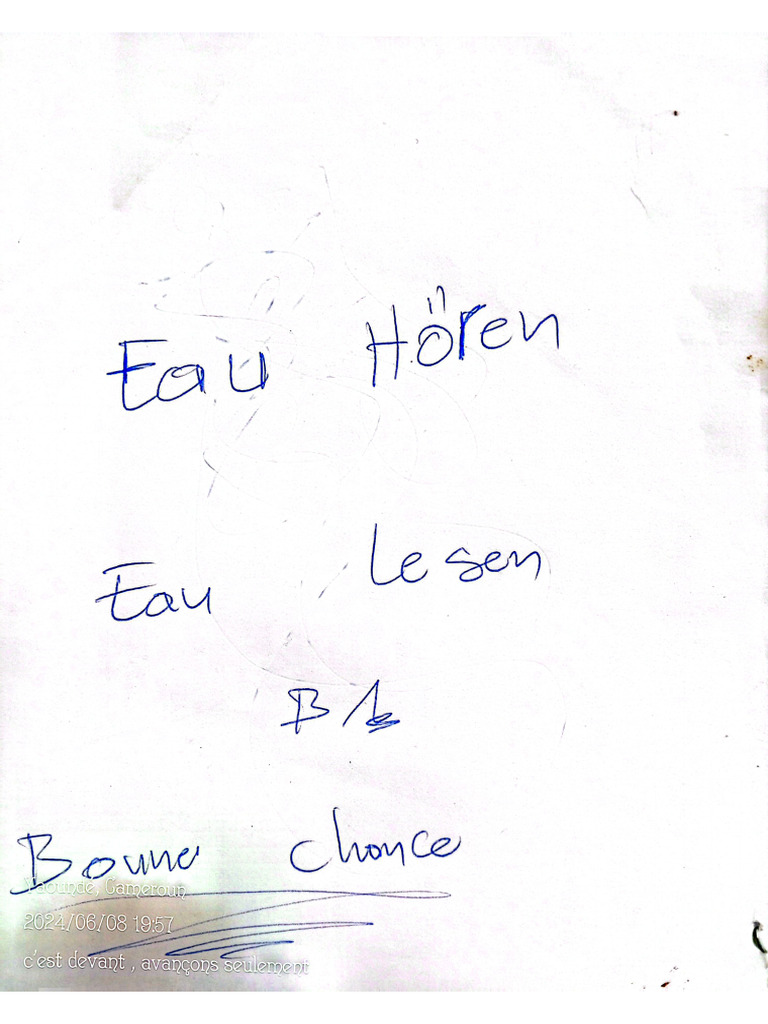 Eau Hören
Eau Lesen
B1
Bonne chance
Yaounde, Cameroun
2024/06/08 19:57
c'est devant , avançons seulement